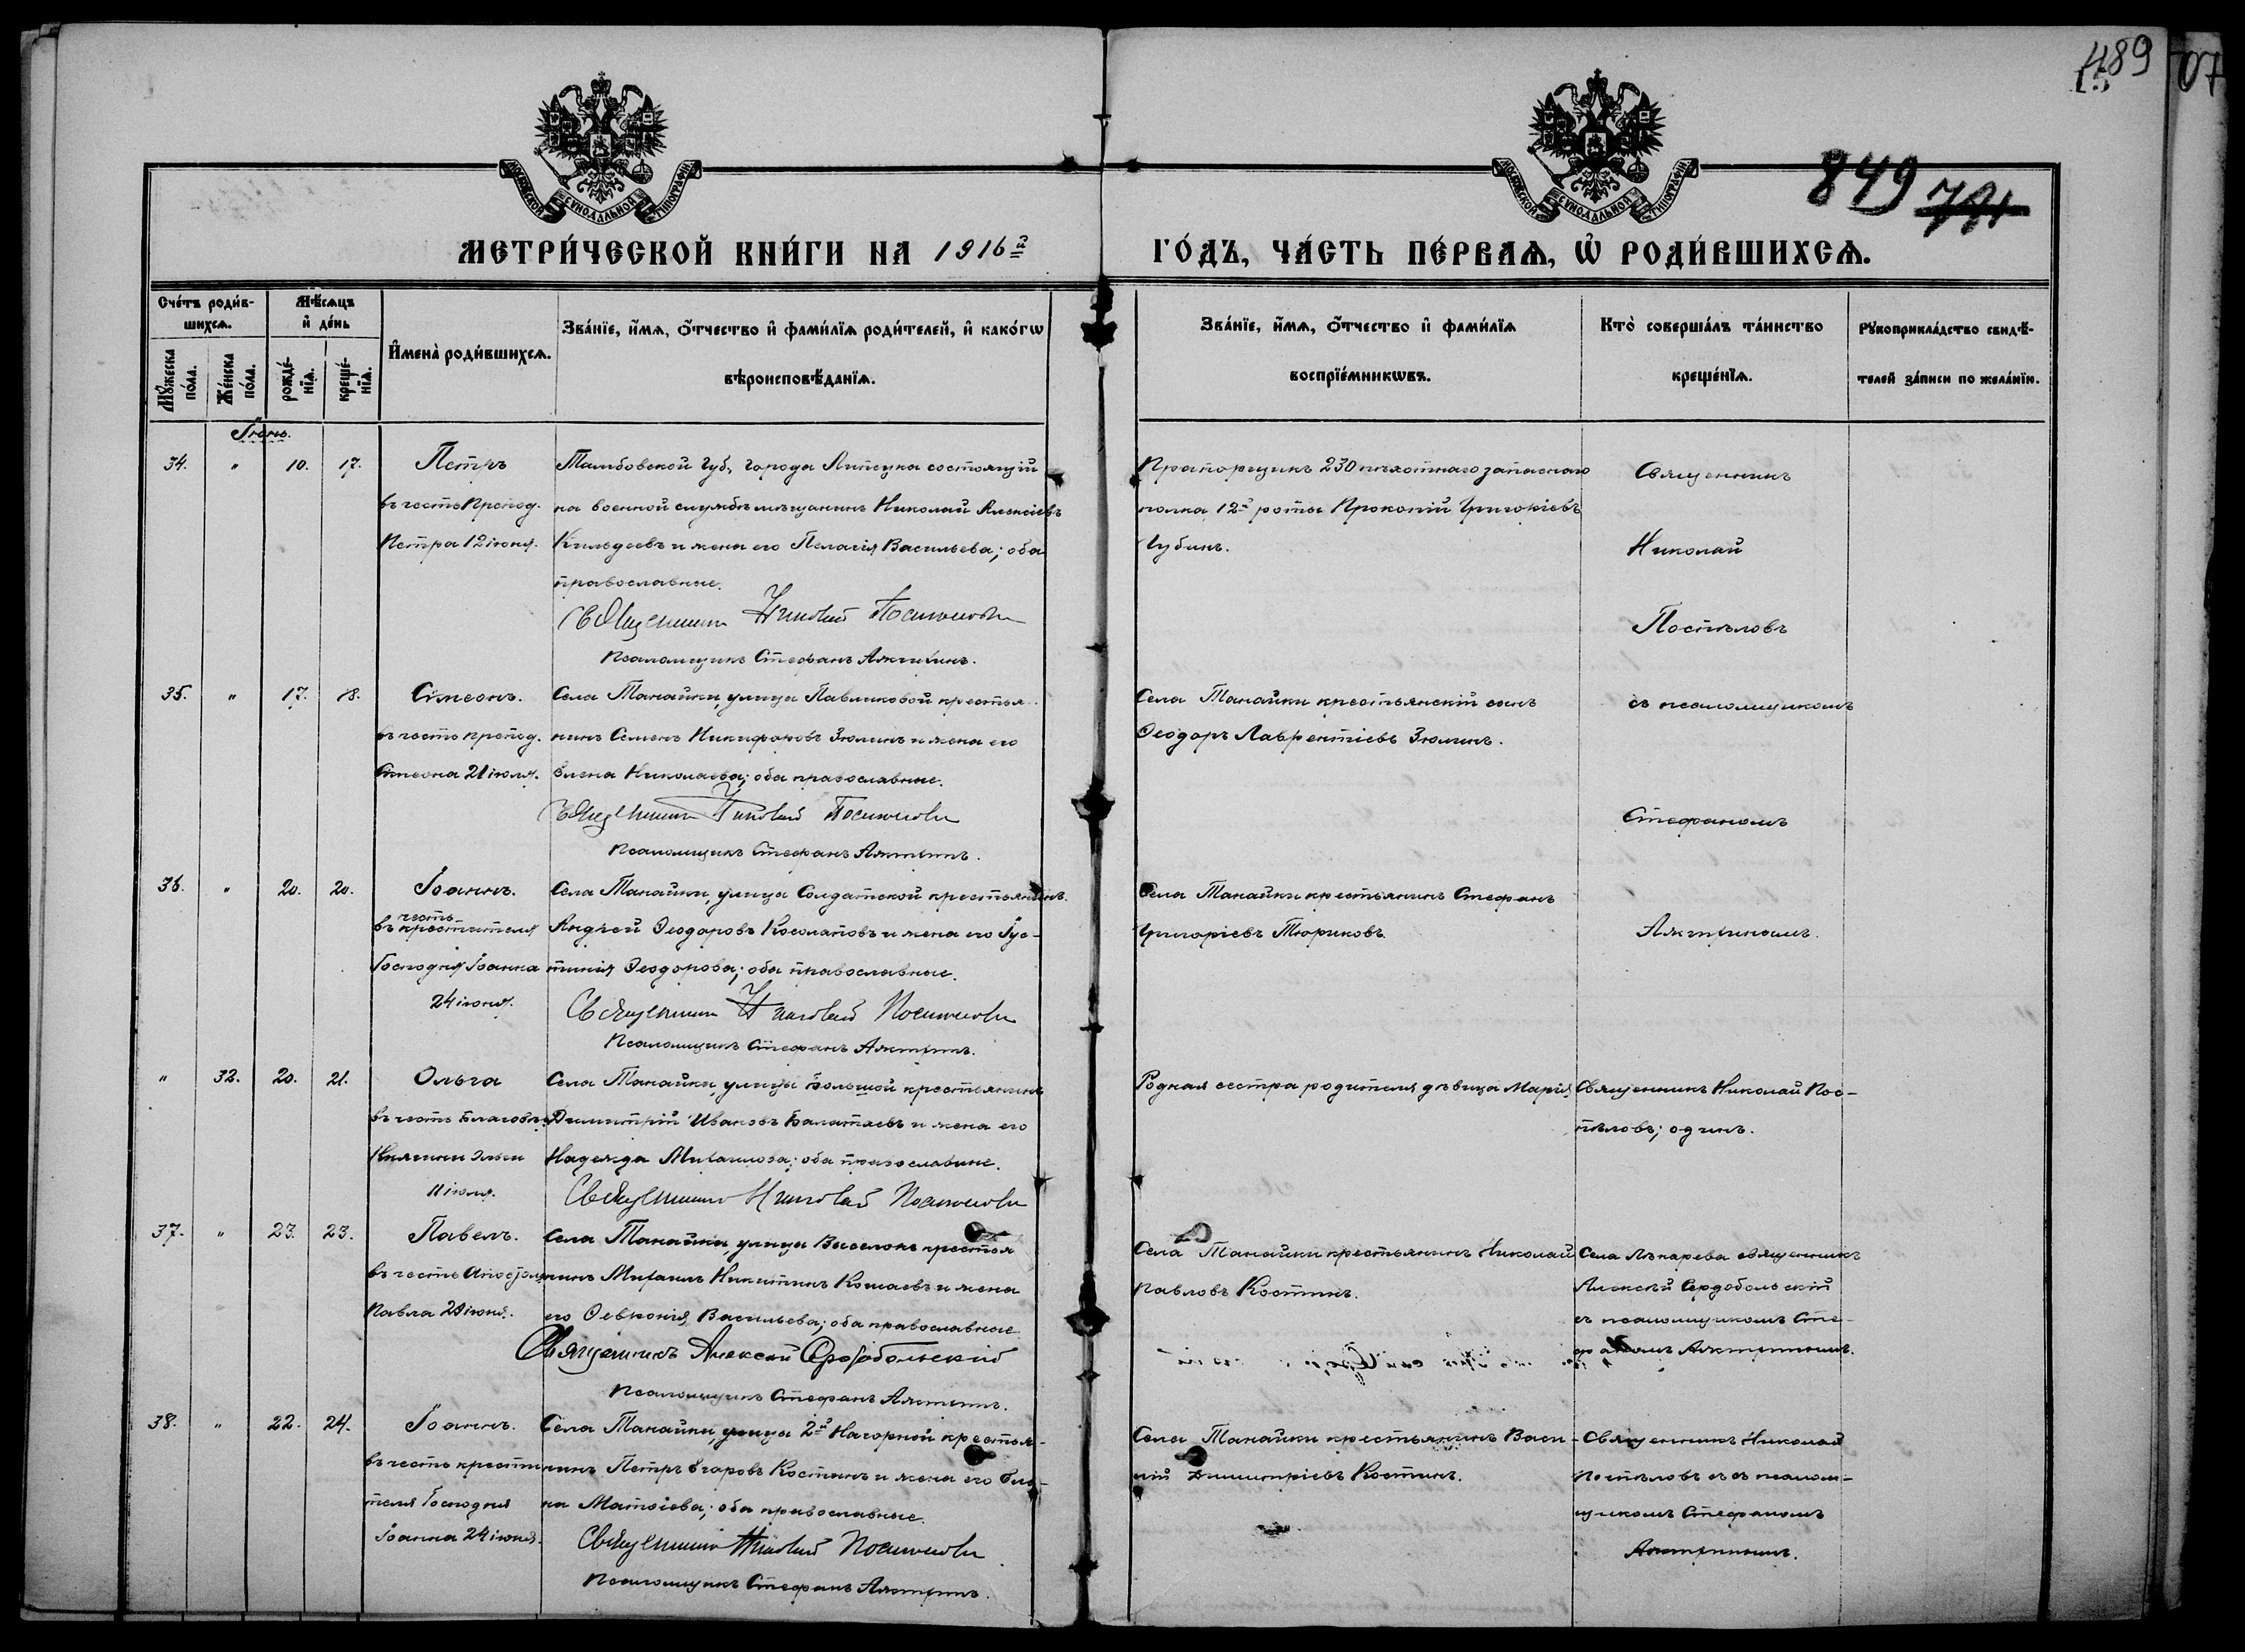 489
07
849
МОСКОВСКОЙ СѴНОДАЛЬНОЙ ТИПОГРАФІИ
МОСКОВСКОЙ СѴНОДАЛЬНОЙ ТИПОГРАФІИ
МЕТРИ́ЧЕСКОЙ КНИ́ГИ НА 1916й ГО́ДЪ, ЧА́СТЬ ПЕ́РВАѦ, Ѡ҆ РОДИ́ВШИХСѦ.
Сче́тъ роди́в-
шихсѧ.
Мѣ́сѧцъ
и҆ де́нь
Мꙋ́жеска
по́ла.
Же́нска
по́ла.
рожде́-
нїѧ.
креще́-
нїѧ.
И҆мена̀ роди́вшихсѧ.
Зва́нїе, и҆́мѧ, ѻ҆́тчество и҆ фами́лїѧ роди́телей, и҆ како́гѡ
вѣроисповѣ́данїѧ.
Зва́нїе, и҆́мѧ, ѻ҆́тчество и҆ фами́лїѧ
воспрїе́мникѡвъ.
Кто̀ соверша́лъ та́инство
креще́нїѧ.
Рꙋкоприкла́дство свидѣ́-
телей за́писи по жела́нїю.
Іюнь.
34. " 10. 17. Петръ
въ честь препод.
Петра 12 іюня.
Тамбовской губ., города Липецка состоящій
на военной службѣ мѣщанинъ Николай Алексіевъ
Кильдеевъ и жена его Пелагія Васильева; оба
православные.
Священникъ Николай Поспѣловъ
Псаломщикъ Стефанъ
Прапорщикъ 230 пѣхотнаго запаснаго
полка 12й роты Прокопій Григоріевъ
Губинъ.
Священникъ
Николай
Поспѣловъ
35. " 17. 18. Симеонъ.
въ честь препод.
Симеона 21 іюля.
Села Танайки, улицы Павликовой крестья-
нинъ Семенъ Никифоровъ Зюлинъ и жена его
Елена Николаева; оба православные.
Священникъ Николай Поспѣловъ
Псаломщикъ Стефанъ
Села Танайки крестьянскій сынъ
Ѳеодоръ Лаврентіевъ Зюлинъ.
съ псаломщикомъ
Стефаномъ
36. " 20. 20. Іоаннъ.
въ честь крестителя
Господня Іоанна
24 іюня.
Села Танайки, улицы Солдатской крестьянинъ
Андрей Ѳеодоровъ Косолаповъ и жена его Іус-
тинія Ѳеодорова; оба православные.
Священникъ Николай Поспѣловъ
Псаломщикъ Стефанъ
Села Танайки крестьянинъ Стефанъ
Григоріевъ Тюриковъ.
" 32. 20. 21. Ольга
въ честь Благовѣр.
Княгини Ольги
11 іюля.
Села Танайки, улицы Большой крестьянинъ
Димитрій Ивановъ Балатаевъ и жена его
Надежда Михаилова; оба православные.
Священникъ Николай Поспѣловъ
Родная сестра родителя дѣвица Марія
Священникъ Николай Пос-
пѣловъ; одинъ.
37. " 23. 23. Павелъ.
въ честь Апостола
Павла 29 іюня.
Села Танайки, улицы Выселокъ крестья
нинъ Михаилъ Никитинъ Кошаевъ и жена
его Ѳевронія Васильева; оба православные.
Священникъ Алексѣй Сердобольскій
Псаломщикъ Стефанъ
Села Танайки крестьянинъ Николай
Павловъ Костинъ.
Села Лѣкарева священникъ
Алексѣй Сердобольскій
съ псаломщикомъ Сте-
фаномъ
38. " 22. 24. Іоаннъ.
въ честь крести
теля Господня
Іоанна 24 іюня.
Села Танайки, улицы 2й Нагорной крестья-
нинъ Петръ Егоровъ Костинъ и жена его Еле-
на Матѳіева; оба православные.
Священникъ Николай Поспѣловъ
Псаломщикъ Стефанъ
Села Танайки крестьянинъ Васи-
лій Димитріевъ Костинъ.
Священникъ Николай
Поспѣловъ съ псалом-
щикомъ Стефаномъ